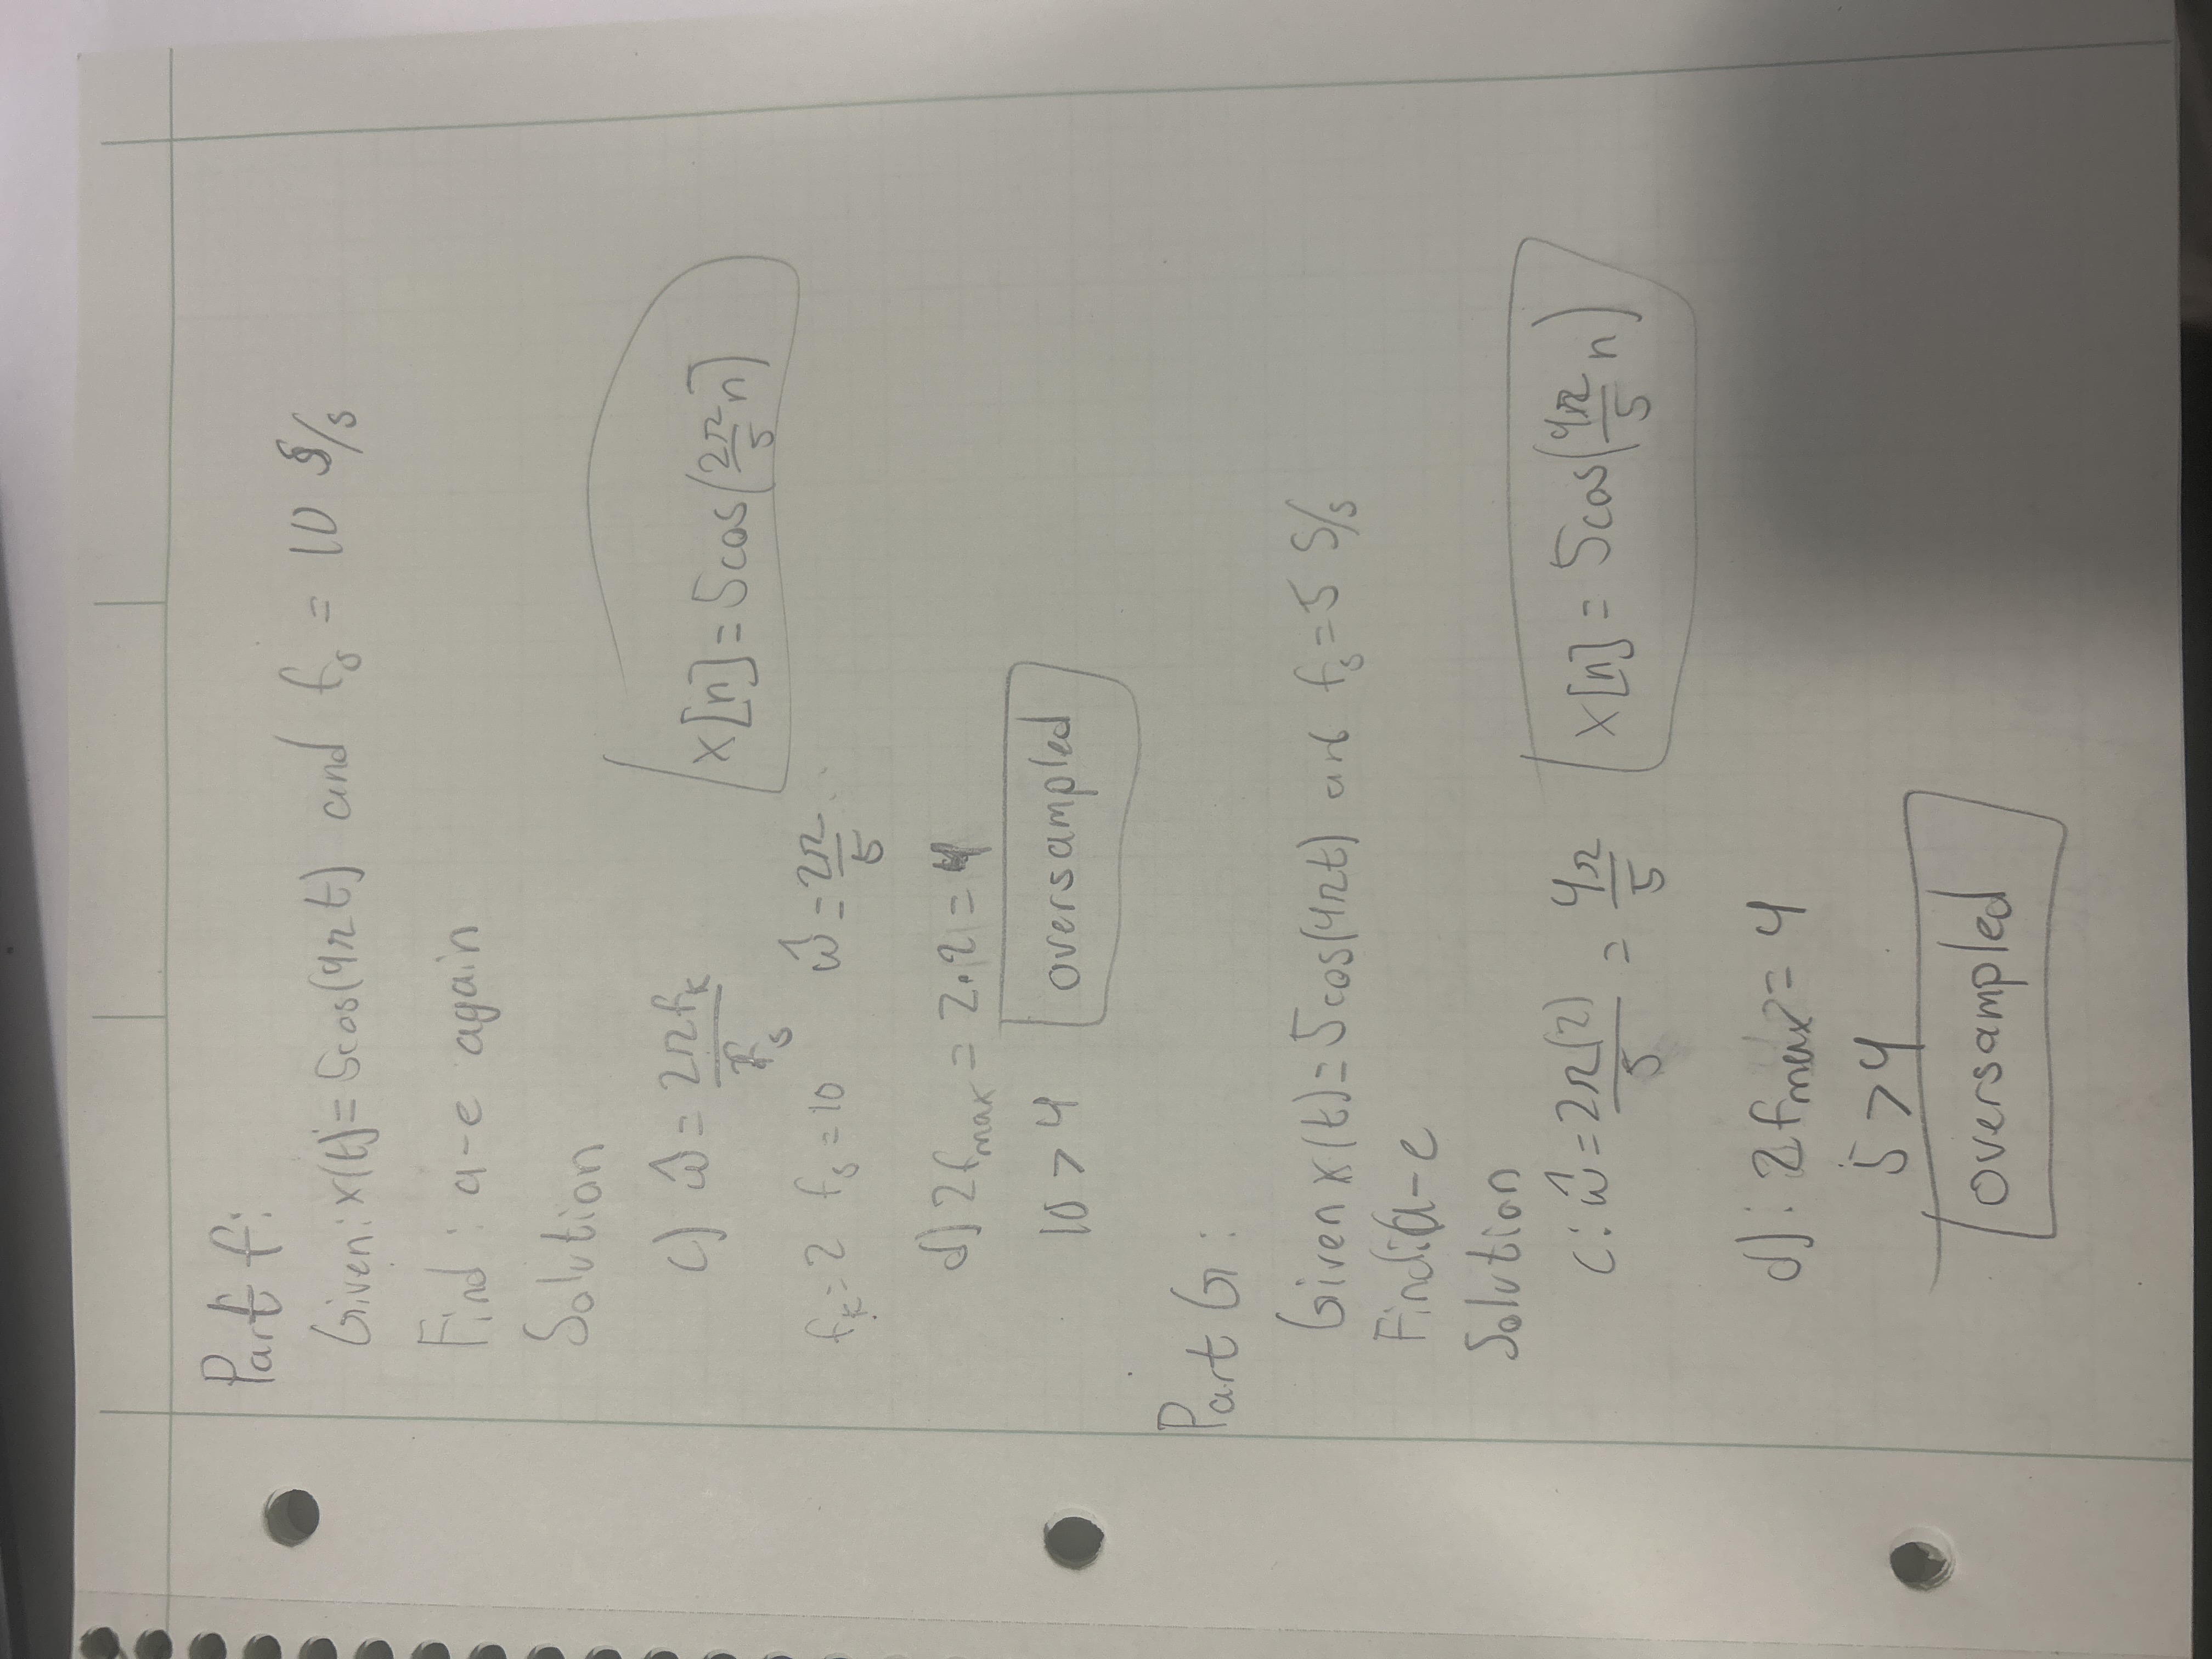 Part f:
Given: x(t) = 5cos(4πt) and f_s = 10 S/s
Find: a-e again
Solution
c) ŵ = 2πf_k / f_s
x[n] = 5cos(2π/5 n)
f_k = 2 f_s = 10 ŵ = 2π/5
d) 2f_max = 2·2 = 4
10 > 4 oversampled
Part G:
Given x(t) = 5cos(4πt) and f_s = 5 S/s
Find: a-e
Solution
c: ŵ = 2π(2)/5 = 4π/5 x[n] = 5cos(4π/5 n)
d): 2f_max = 4
5 > 4
oversampled